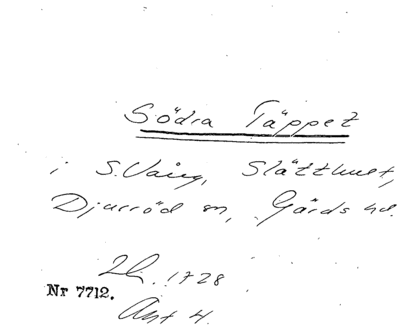 Södra Täppet
i S. Vång, Slätthult,
Djurröd sn, Gärds hd.
Lh. 1728
Nr 7712.
Akt 4.